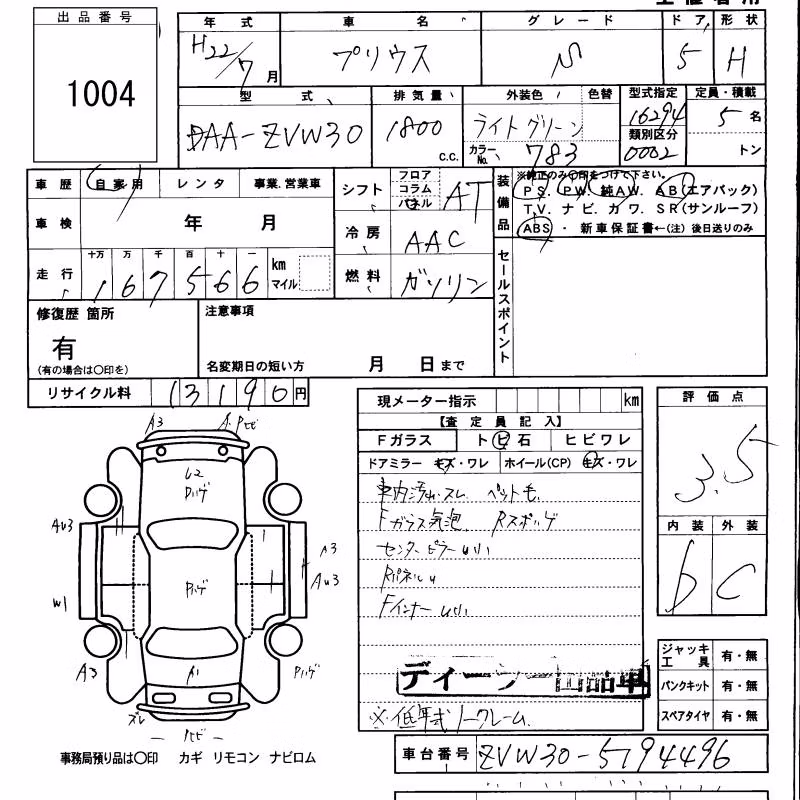 出品番号
1004
年式 車名 グレード ドア 形状
H22/7月 プリウス S 5 H
型式 排気量 外装色 色替 型式指定 定員・積載
DAA-ZVW30 1800 c.c. ライトグリーン 16294 5名
カラーNo. 783 類別区分 0002 トン
車歴 自家用 レンタ 事業.営業車
シフト フロア コラム パネル AT
装備品 ※純正のみ〇印をつけて下さい。
PS. PW. 純AW. AB(エアバック)
T.V. ナビ. カワ. SR(サンルーフ)
ABS ・ 新車保証書←(注) 後日送りのみ
車検 年 月
冷房 AAC
走行 十万 万 千 百 十 一 km マイル
167566
燃料 ガソリン
セールスポイント
修復歴 箇所 注意事項
有
(有の場合は〇印を) 名変期日の短い方 月 日まで
リサイクル料 13190円
現メーター指示 km
【査定員記入】
Fガラス ト ヒ 石 ヒビワレ
ドアミラー キズ・ワレ ホイール(CP) キズ・ワレ
評価点
3.5
車内汚れ.スレ ペット毛
Fガラス気泡 Rスポハゲ
センターピラー
Rパネル
Fインナー
内装 外装
b C
ディーラー出品車
※低年式ノークレーム.
ジャッキ工具 有・無
パンクキット 有・無
スペアタイヤ 有・無
車台番号 ZVW30-5194496
A3 A.Pヒビ
U2
Pハゲ
AU3
A3
AU3
W1
Pハゲ
A3 A1 Pハゲ
ズレ
ヒビ
事務局預り品は〇印 カギ リモコン ナビロム